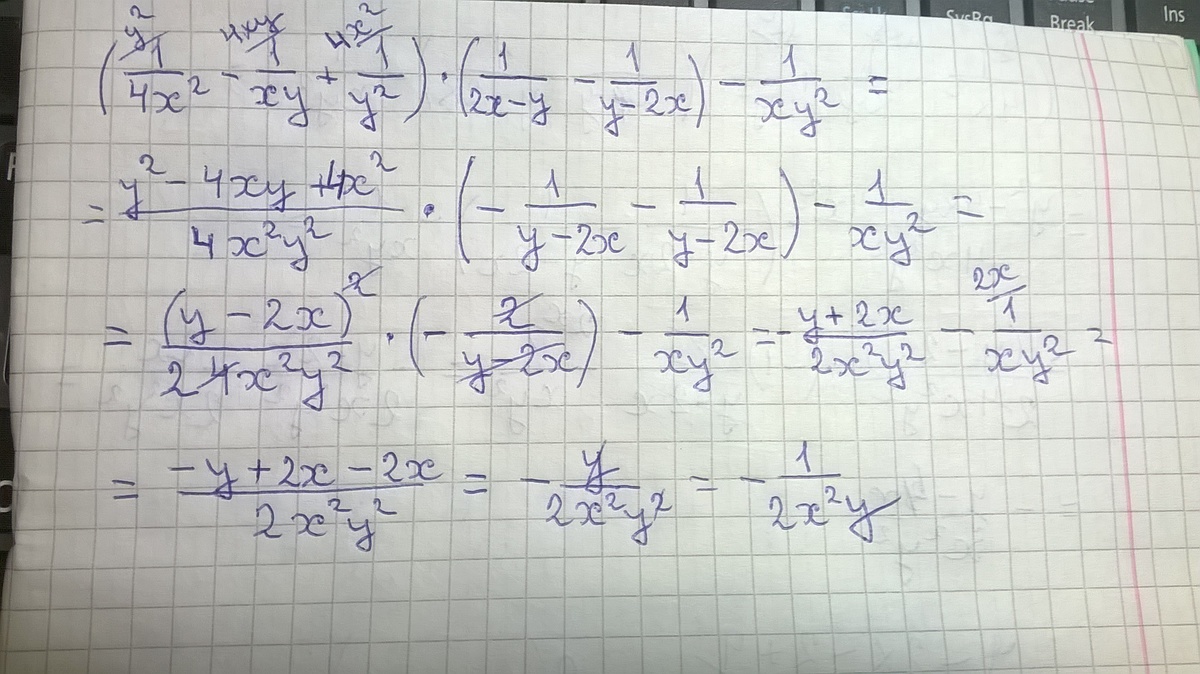 SysRq Break Ins
(1/4x² - 1/xy + 1/y²) · (1/2x-y - 1/y-2x) - 1/xy² =
y² 4xy 4x²
= y² - 4xy + 4x² / 4x²y² · (- 1/y-2x - 1/y-2x) - 1/xy² =
= (y - 2x)² / 2 4x²y² · (- 2/y-2x) - 1/xy² = - y + 2x / 2x²y² - 2x 1/xy² =
= -y + 2x - 2x / 2x²y² = - y/2x²y² = - 1/2x²y